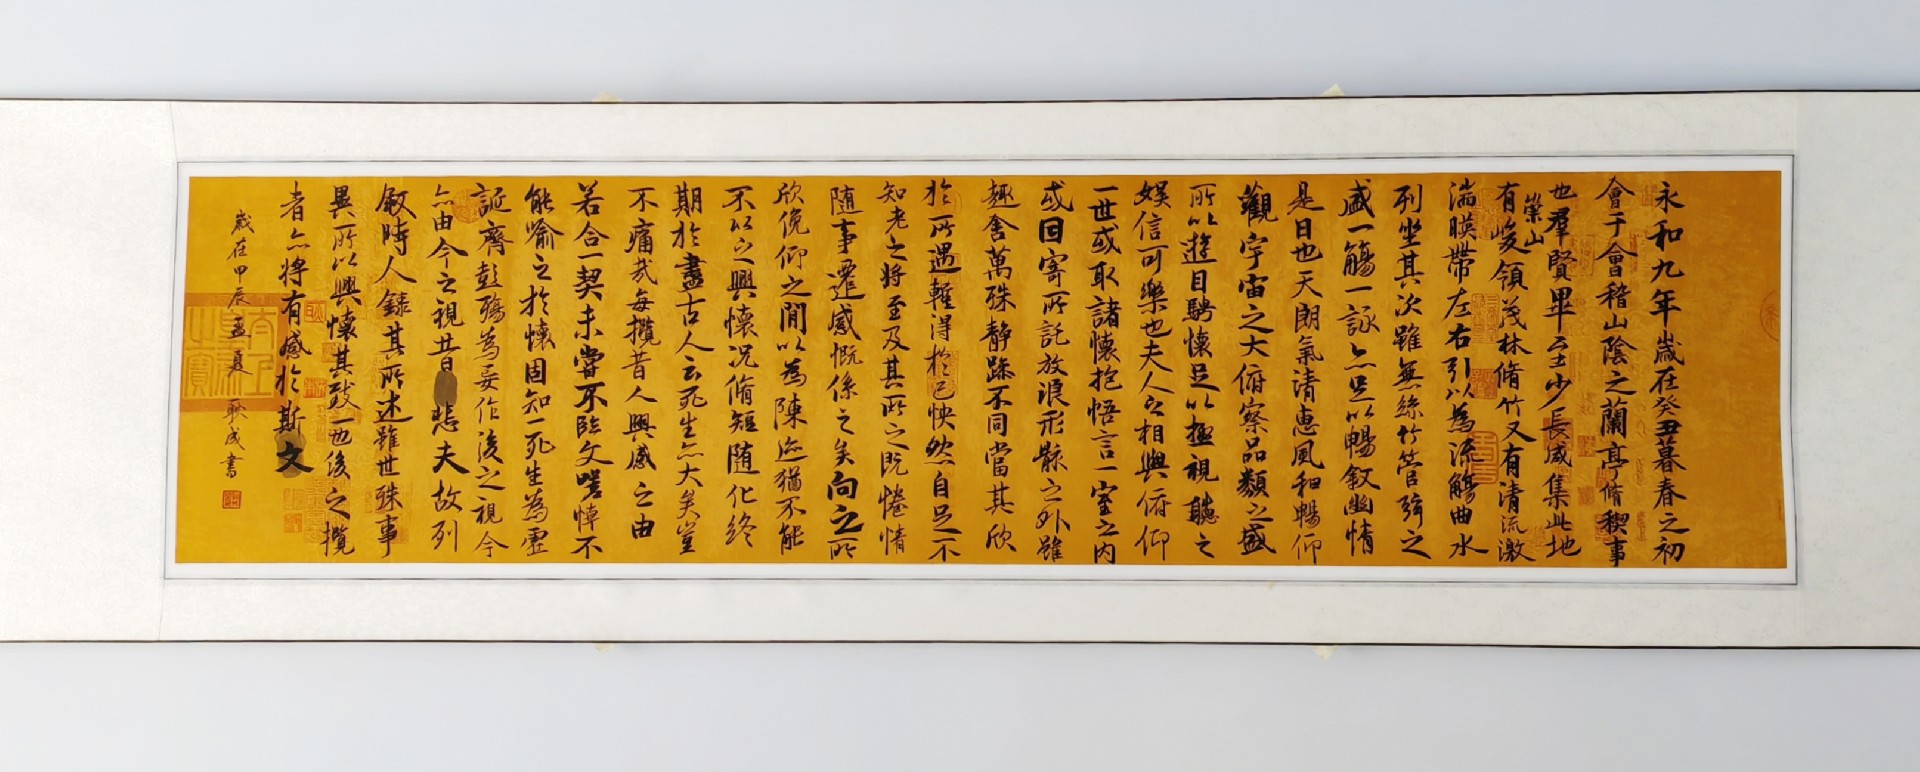 永和九年歲在癸丑暮春之初
會于會稽山陰之蘭亭脩稧事
也羣賢畢至少長咸集此地
有崇山峻領茂林脩竹又有清流激
湍暎帶左右引以為流觴曲水
列坐其次雖無絲竹管弦之
盛一觴一詠亦足以暢敘幽情
是日也天朗氣清惠風和暢仰
觀宇宙之大俯察品類之盛
所以遊目騁懷足以極視聽之
娛信可樂也夫人之相與俯仰
一世或取諸懷抱悟言一室之內
或因寄所託放浪形骸之外雖
趣舍萬殊靜躁不同當其欣
於所遇蹔得於己怏然自足不
知老之將至及其所之既惓情
隨事遷感慨係之矣向之所
欣俛仰之閒以為陳迹猶不能
不以之興懷況脩短隨化終
期於盡古人云死生亦大矣豈
不痛哉每攬昔人興感之由
若合一契未嘗不臨文嗟悼不
能喻之於懷固知一死生為虛
誕齊彭殤為妄作後之視今
亦由今之視昔悲夫故列
敘時人錄其所述雖世殊事
異所以興懷其致一也後之攬
者亦將有感於斯文
歲在甲辰孟夏 耿成書